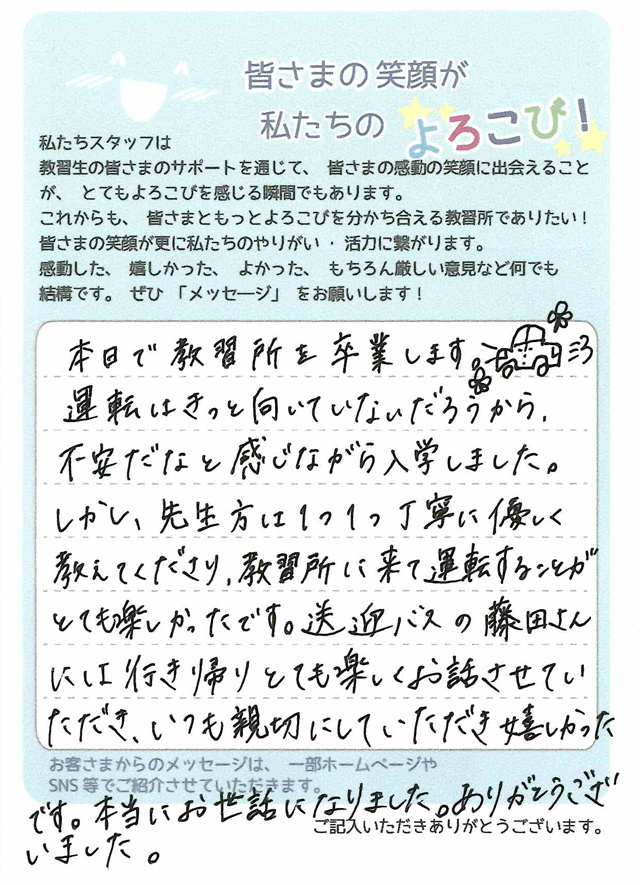 皆さまの笑顔が
私たちの よろこび!
私たちスタッフは
教習生の皆さまのサポートを通じて、 皆さまの感動の笑顔に出会えること
が、 とてもよろこびを感じる瞬間でもあります。
これからも、 皆さまともっとよろこびを分かち合える教習所でありたい!
皆さまの笑顔が更に私たちのやりがい・活力に繋がります。
感動した、 嬉しかった、 よかった、 もちろん厳しい意見など何でも
結構です。 ぜひ 「メッセージ」 をお願いします!
本日で教習所を卒業します
運転はきっと向いていないだろうから、
不安だなと感じながら入学しました。
しかし、先生方は1つ1つ丁寧に優しく
教えてくださり、教習所に来て運転することが
とても楽しかったです。送迎バスの藤田さん
には行き帰りとても楽しくお話させてい
ただき、いつも親切にしていただき嬉しかった
お客さまからのメッセージは、 一部ホームページや
SNS等でご紹介させていただきます。
です。本当にお世話になりました。ありがとうござ
ご記入いただきありがとうございます。
いました。